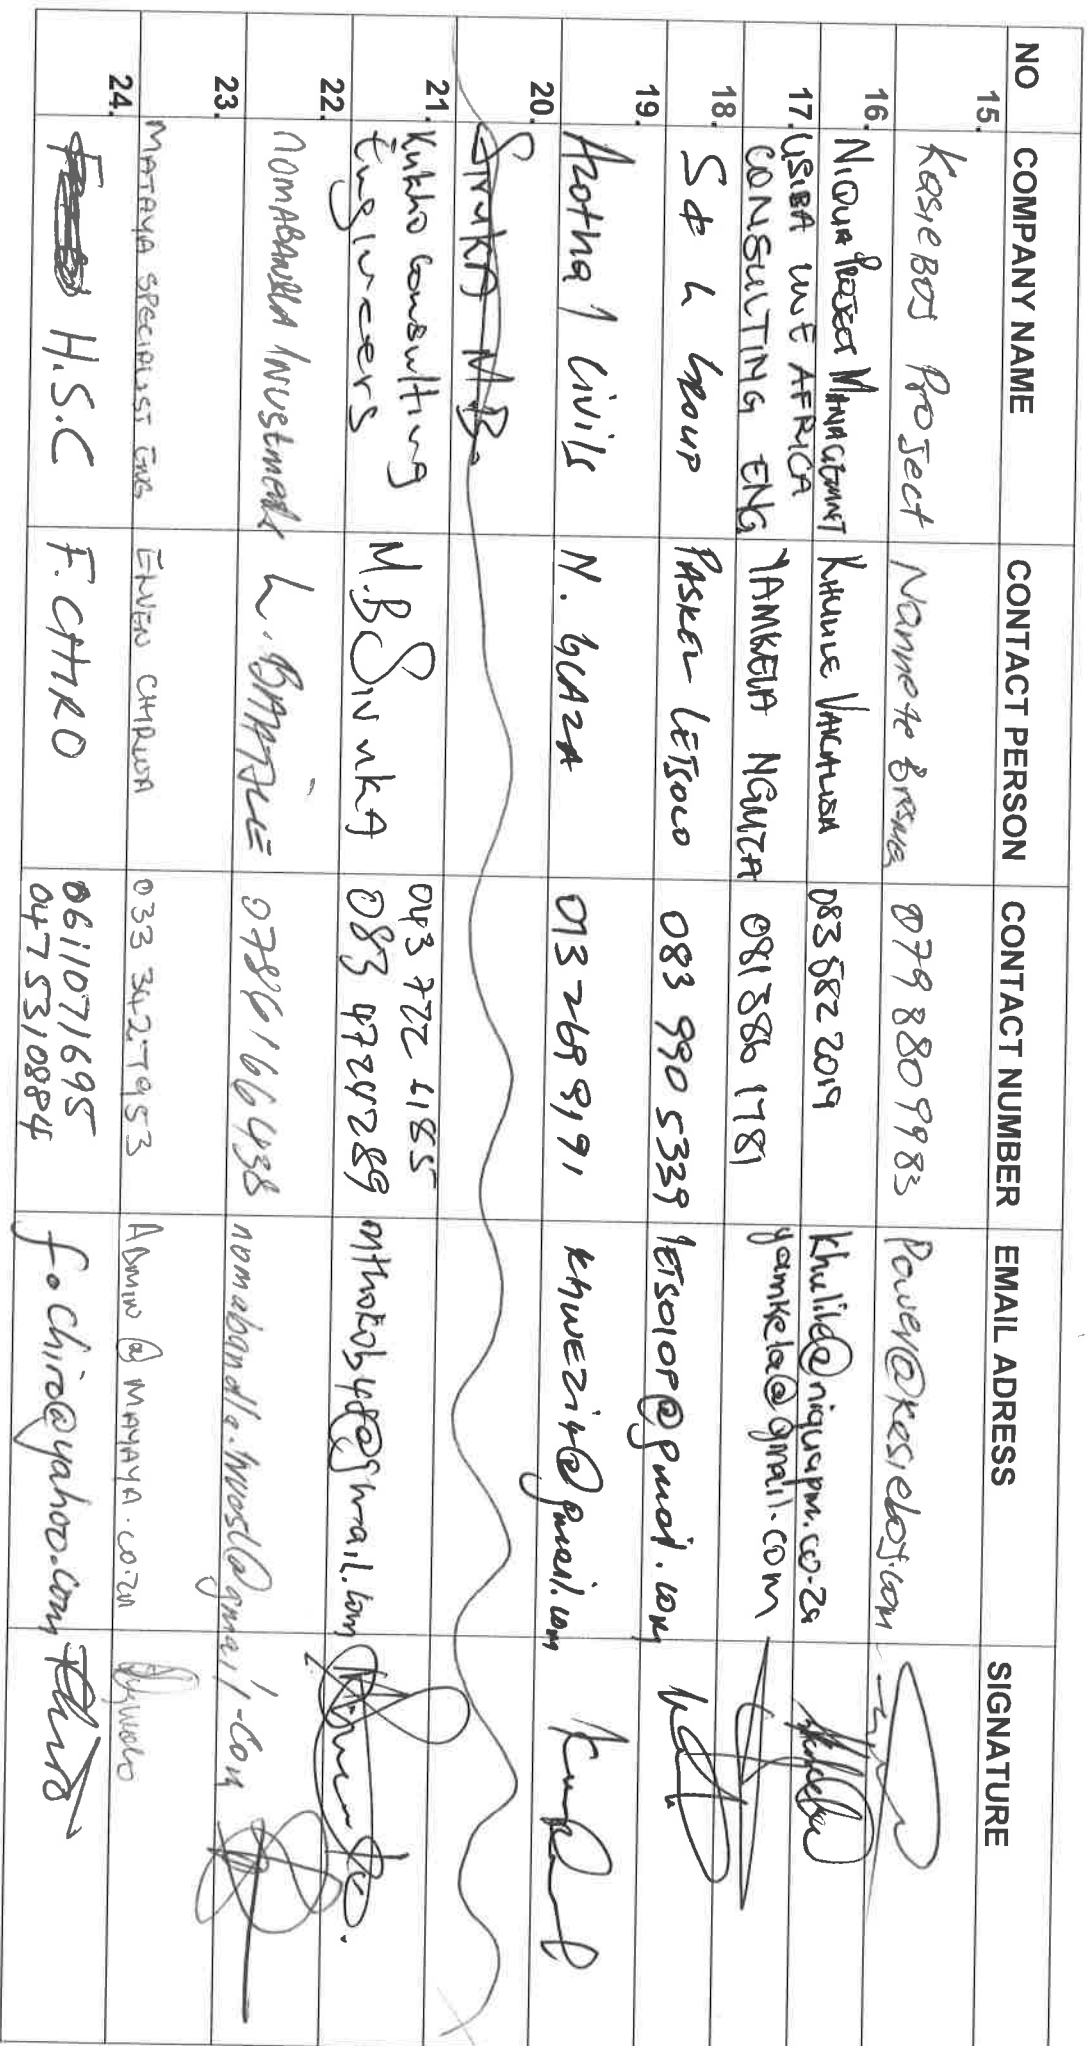 NO COMPANY NAME CONTACT PERSON CONTACT NUMBER EMAIL ADRESS SIGNATURE
15. KasieBOJ Project Nannete 079 880 9983 Power@kasieboj.com
16. NIQUA PROJECT MANAGEMENT KHULILE VAKALISA 083 582 2019 khulile@niquapm.co.za
17. USIBA WE AFRICA
CONSULTING ENG YAMKELA NGUZA 081 386 1781 yamkela@gmail.com
18. S & L GROUP PASKEL LETSOLO 083 990 5339 letsolop@gmail.com
19. Azotha 1 Civils N. GCAZA 073 269 8191 KHWEZI4@gmail.com
20. SINUKA M.B
21. Kukho Consulting
Engineers M.B SINUKA 043 722 4185
083 4724289 mthokob48@gmail.com
22. NOMABANDLA Investments L. 0786166438 nomabandla.invest@gmail.com
23. MATAYA SPECIALIST ENG ELVEN CHIRWA 033 3427953 ADMIN@MAYAYA.CO.ZA
24. H.S.C F. CHIRO 0611071695
047 5310884 f.chiro@yahoo.com